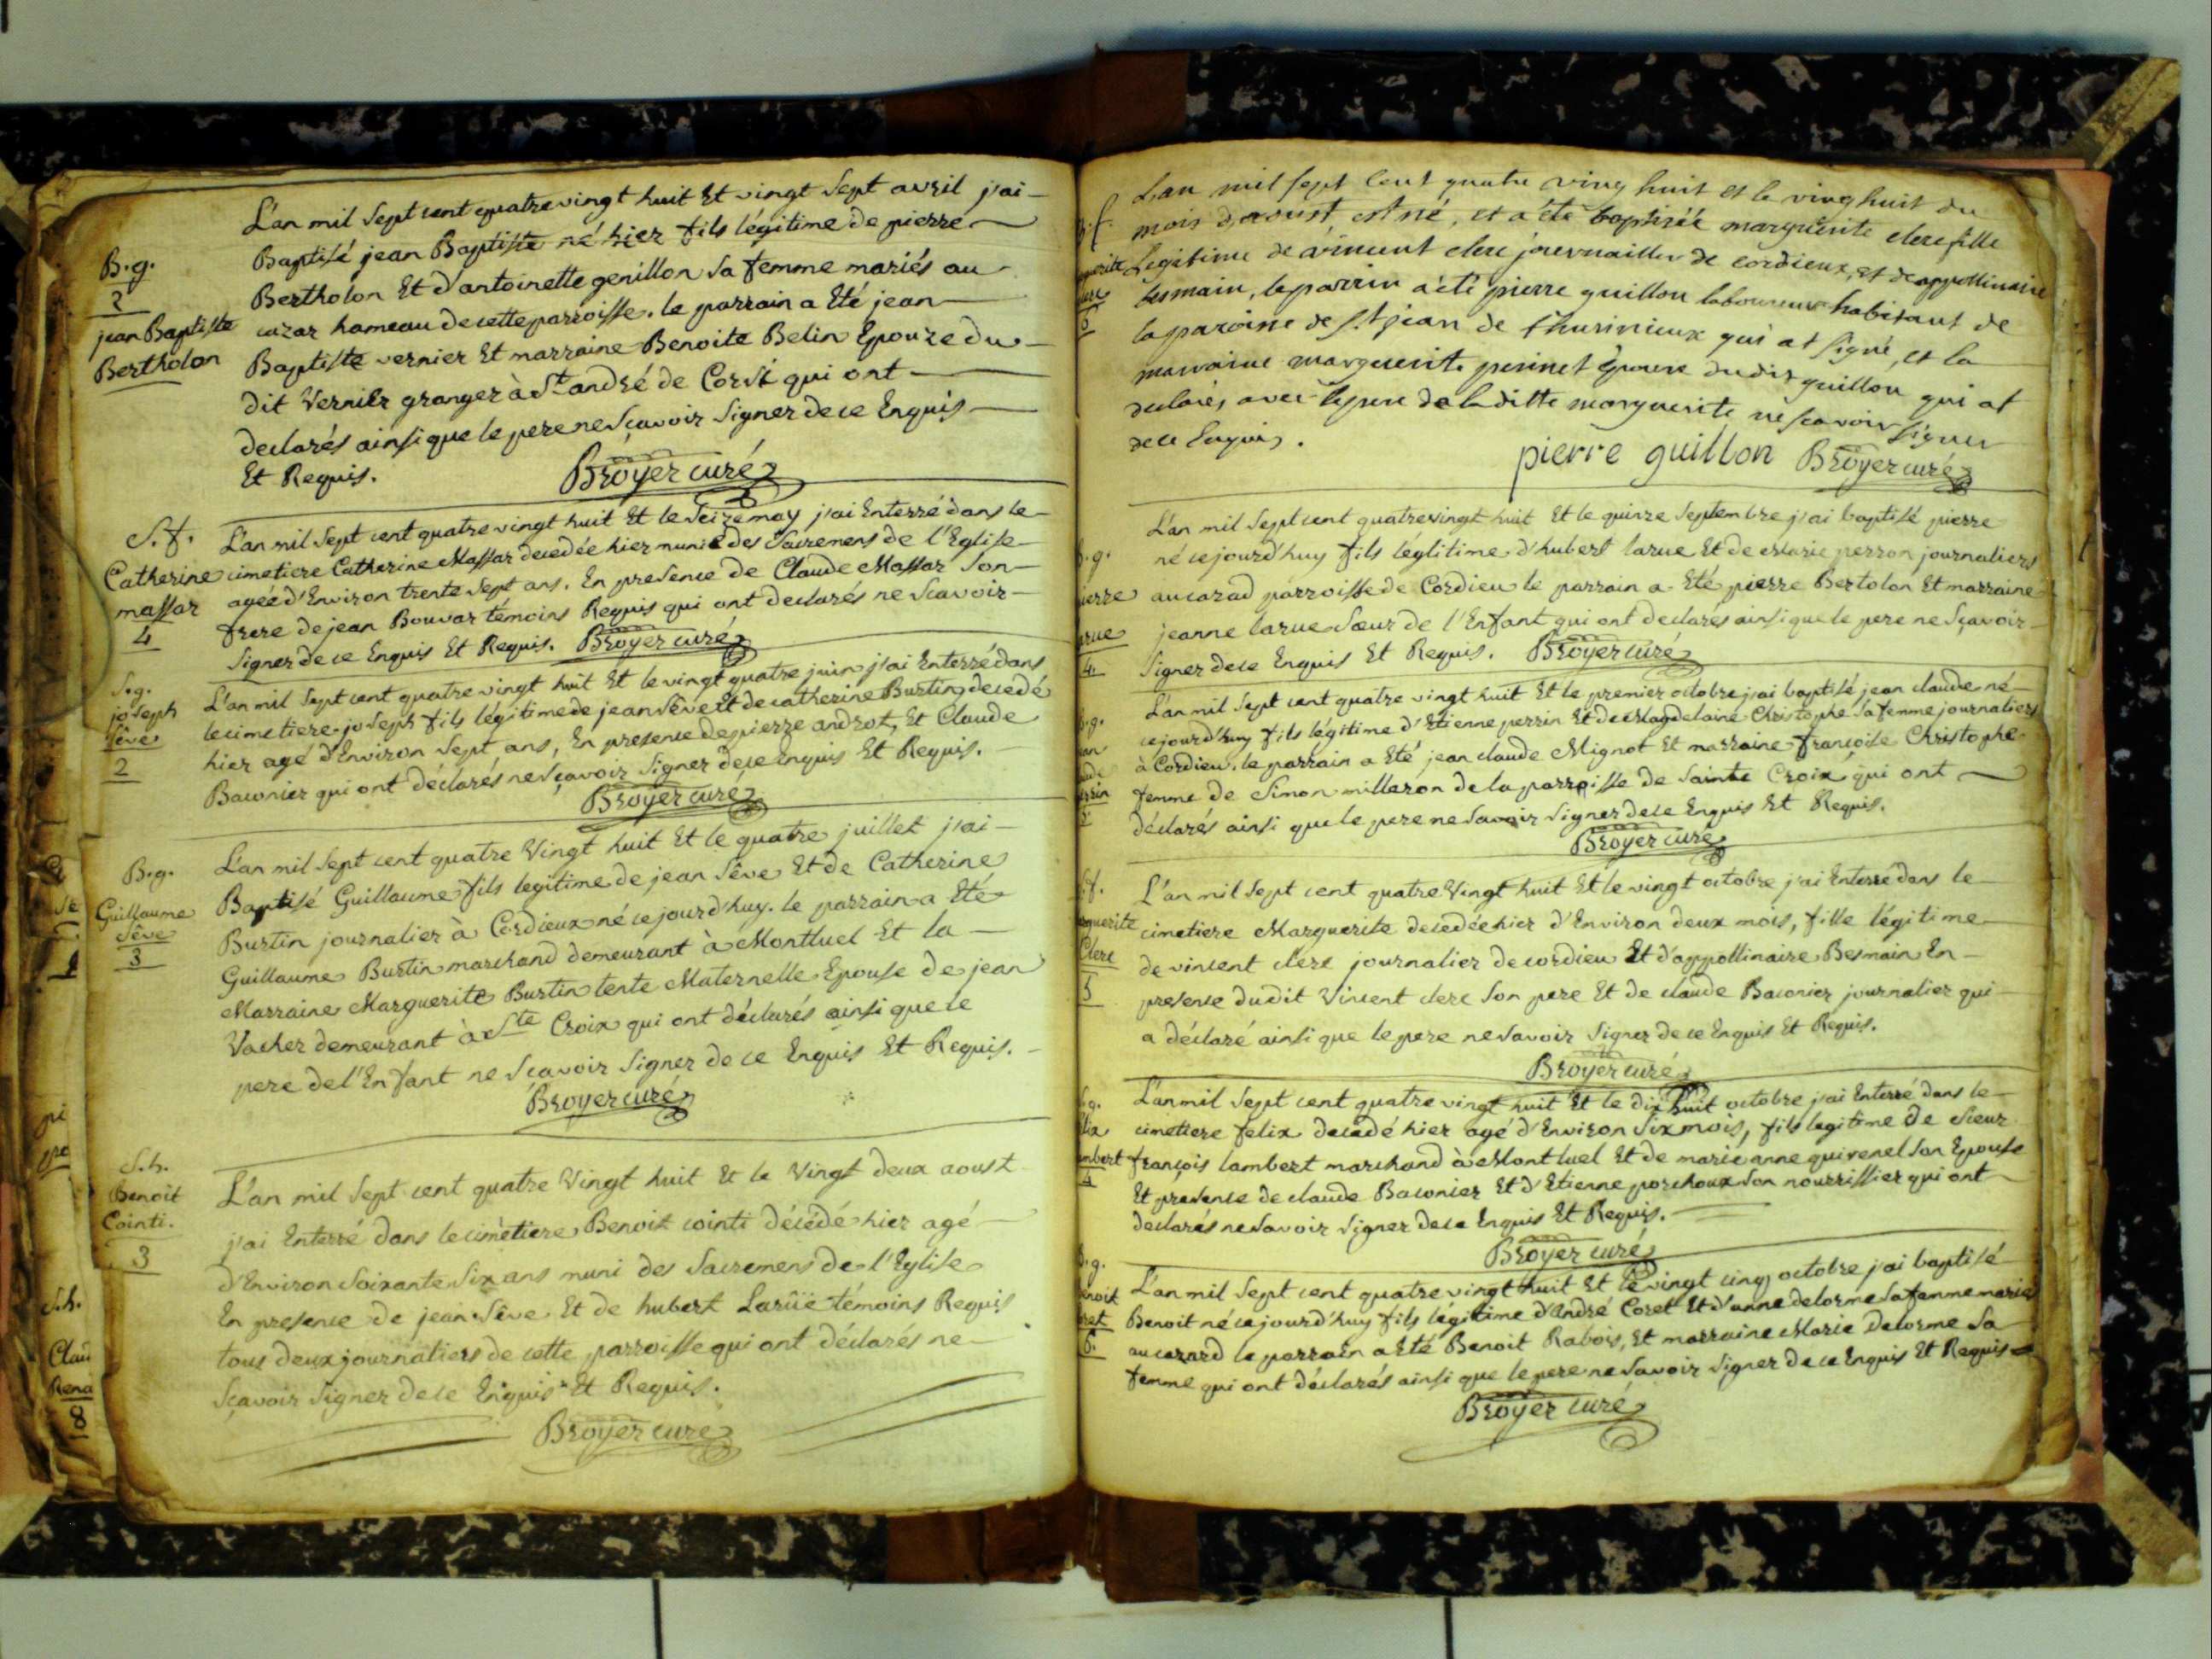 B.g.
2
jean Baptiste
Bertholon
L'an mil Sept cent quatre vingt huit Et vingt Sept avril j'ai
Baptisé jean Baptiste né hier fils légitime de pierre
Bertholon Et d'antoinette genillon Sa femme mariés au
cazar hameau de cette parroisse. le parrain a Eté jean
Baptiste vernier Et marraine Benoite Belin Epouze du
dit Vernier granger à St andré de Corsi qui ont
declarés ainsi que le pere ne Sçavoir Signer de ce Enquis
Et Requis.
Broyer curé
S.f.
Catherine
massar
4
L'an mil Sept cent quatre vingt huit Et le Seize may j'ai Enterré dans le
cimetiere Catherine Massar decedée hier munie des Sacremens de l'Eglise
agée d'Environ trente Sept ans. En presence de Claude Massar Son
frere de jean Bouvar témoins Requis qui ont declarés ne Scavoir
Signer de ce Enquis Et Requis. Broyer curé
S.g.
joseph
Sêve
2
L'an mil Sept cent quatre vingt huit Et le vingt quatre juin j'ai Enterré dans
le cimetiere joseph fils légitime de jean Sêve Et de catherine Burtin decedé
hier agé d'Environ Sept ans, En presence de pierre androt, Et Claude
Baconier qui ont déclarés ne Sçavoir Signer de ce Enquis Et Requis.
Broyer curé
B.g.
Guillaume
Sêve
3
L'an mil Sept cent quatre Vingt huit Et le quatre juillet j'ai
Baptisé Guillaume fils legitime de jean Sêve Et de Catherine
Burtin journalier à Cordieux né ce jourd'huy. le parrain a Eté
Guillaume Burtin marchand demeurant à Montluel Et la
Marraine Marguerite Burtin tente Maternelle Epouse de jean
Vacher demeurant à Ste Croix qui ont déclarés ainsi que le
pere de l'Enfant ne Scavoir Signer de ce Enquis Et Requis.
Broyer curé
S.h.
Benoit
Cointi.
3
L'an mil Sept cent quatre Vingt huit Et le Vingt deux aoust
j'ai Enterré dans le cimètiere Benoit cointi décédé hier agé
d'Environ Soixante Six ans muni des Sacremens de l'Eglise
En presence de jean Sêve Et de hubert Larüe témoins Requis
tous deux journaliers de cette parroisse qui ont déclarés ne
Sçavoir Signer de ce Enquis Et Requis.
Broyer curé
S.h.
8
L'an mil sept cent quatre ving huit et le ving huit du
mois d'aoust est né, et a été baptisée marguerite clere fille
Legitime de vincent clere journaillier de cordieux, et de appollinaire
besmain, le parrin a été pierre guillon laboureur habitant de
la paroisse de st jean de thurinieux qui at signé, et la
marraine marguerite perinet épouse dudit guillon qui at
declarés avec le pere de la ditte marguerite ne scavoir signer
de ce Enquis.
pierre guillon Broyer curé
L'an mil Sept cent quatre vingt huit Et le quinze Septembre j'ai baptisé pierre
né ce jourd'huy fils léglitime d'hubert larue Et de Marie perron journaliers
au cazad parroisse de Cordieu le parrain a Eté pierre Bertolon Et marraine
jeanne larue Sœur de l'Enfant qui ont declarés ainsi que le pere ne Sçavoir
Signer de ce Enquis Et Requis. Broyer curé
4.
L'an mil Sept cent quatre vingt huit Et le premier octobre j'ai baptisé jean claude né
ce jourd'huy fils légitime d'Etienne perrin Et de Magdelaine Christophe Sa femme journaliers
à Cordieu. le parrain a Eté jean claude Mignot Et marraine françoise Christophe
femme de Simon milleron de la parroisse de Sainte Croix qui ont
déclarés ainsi que le pere ne Savoir Signer de ce Enquis Et Requis.
Broyer curé
Clere
5
L'an mil Sept cent quatre Vingt huit Et le vingt octobre j'ai Enterré dans le
cimetiere Marguerite decedée hier d'Environ deux mois, fille légitime
de vincent clere journalier de cordieu Et d'appollinaire Besmain En
presence dudit Vincent clere Son pere Et de claude Baconier journalier qui
a déclaré ainsi que le pere ne Savoir Signer de ce Enquis Et Requis.
Broyer curé
L'an mil Sept cent quatre vingt huit Et le dix huit octobre j'ai Enterré dans le
cimetiere felix decedé hier agé d'Environ Six mois, fils legitime de Sieur
françois lambert marchand à Montluel Et de marie anne quivenel Son Epouse
Et presence de claude Baconier Et d'Etienne porchoux Son nourrissier qui ont
declarés ne Savoir Signer de ce Enquis Et Requis.
Broyer curé
6.
L'an mil Sept cent quatre vingt huit Et le vingt cinq octobre j'ai baptisé
Benoit né ce jourd'huy fils légitime d'André Coret Et d'anne delorme Sa femme mariés
au cazard le parrain a Eté Benoit Rabois, Et marraine Marie Delorme Sa
femme qui ont déclarés ainsi que le pere ne Savoir Signer de ce Enquis Et Requis
Broyer curé